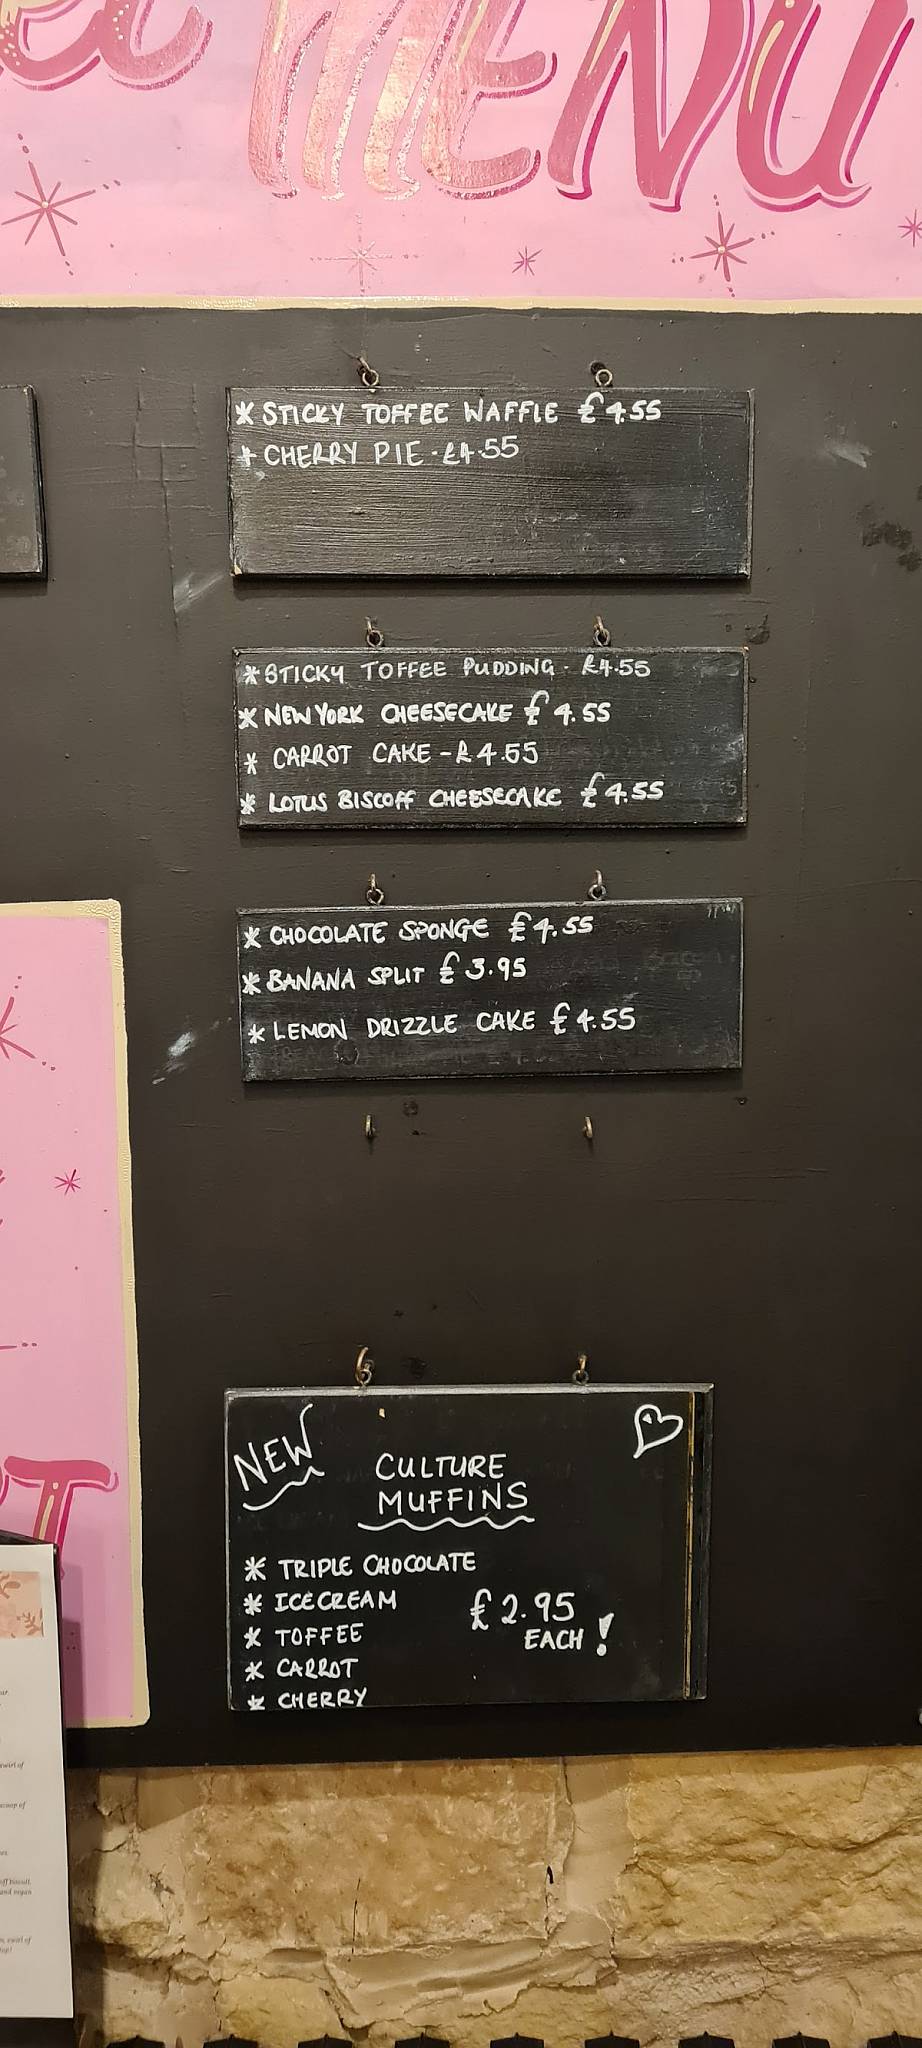 MENU
* STICKY TOFFEE WAFFLE £4.55
* CHERRY PIE - £4.55
* STICKY TOFFEE PUDDING - £4.55
* NEW YORK CHEESECAKE £4.55
* CARROT CAKE - £4.55
* LOTUS BISCOFF CHEESECAKE £4.55
* CHOCOLATE SPONGE £4.55
* BANANA SPLIT £3.95
* LEMON DRIZZLE CAKE £4.55
NEW
CULTURE
MUFFINS
* TRIPLE CHOCOLATE
* ICECREAM
* TOFFEE
* CARROT
* CHERRY
£2.95
EACH!
swirl of
scoop of
biscuit
and vegan
swirl of